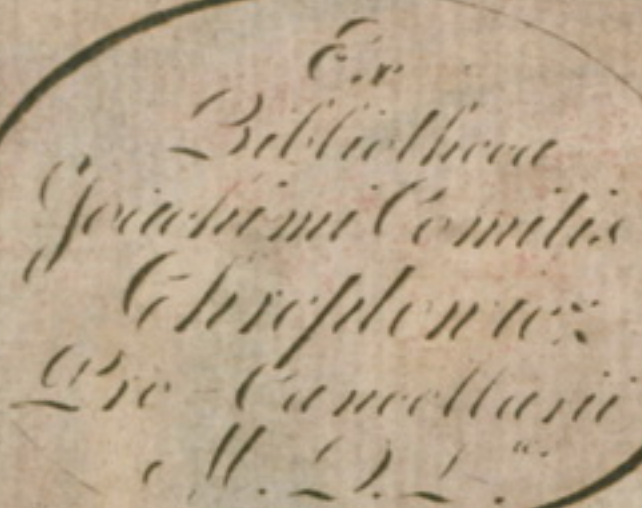 Ex
Bibliotheca
Joachimi Comitis
Chreptowicz
Pro-Cancellarii
M. D. L.